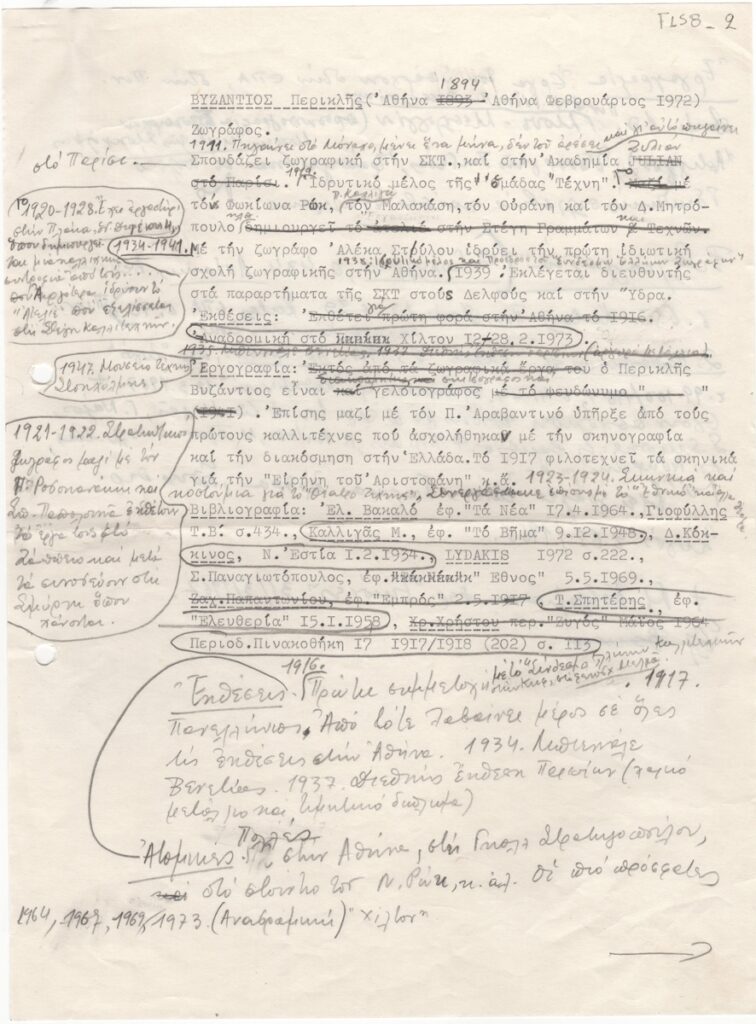 ΓLSB_2
1894
ΒΥΖΑΝΤΙΟΣ Περικλῆς('Αθήνα 1893 'Αθήνα Φεβρουάριος 1972)
Ζωγράφος.
1911. Πηγαίνει στό Μόναχο, μένει ἕνα μήνα, δέν τοῦ ἀρέσει καί γι αὐτό πηγαίνει
στό Παρίσι.
Σπουδάζει ζωγραφική στήν ΣΚΤ.,καί στήν 'Ακαδημία JULIAN
στό Παρίσι. Ἱδρυτικό μέλος τῆς "ὁμάδας "Τέχνη". Μαζί μέ
τόν Φωκίωνα Ρώκ, τόν Μαλακάση,τόν Οὐράνη καί τόν Δ.Μητρό-
πουλο δημιουργεῖ τό ἀτελιέ στήν Στέγη Γραμμάτων & Τεχνῶν.
Μέ τήν ζωγράφο 'Αλέκα Στύλου ἱδρύει τήν πρώτη ἰδιωτική
σχολή ζωγραφικῆς στήν 'Αθήνα. 1939 'Εκλέγεται διευθυντής
στά παραρτήματα τῆς ΣΚΤ στούς Δελφούς καί στήν Ὕδρα.
'Εκθέσεις: 'Εκθέτει πρώτη φορά στήν 'Αθήνα τό 1916.
'Αναδρομική στό Χίλτον 12-28.2.1973.
'Εργογραφία: 'Εκτός ἀπό τά ζωγραφικά ἔργα του ὁ Περικλῆς
Βυζάντιος εἶναι καί γελοιογράφος μέ τό ψευδώνυμο "____ "
(1941) .'Επίσης μαζί μέ τόν Π.'Αραβαντινό ὑπῆρξε ἀπό τούς
πρώτους καλλιτέχνες πού ἀσχολήθηκαν μέ τήν σκηνογραφία
καί τήν διακόσμηση στήν Ἑλλάδα.Τό 1917 φιλοτεχνεῖ τά σκηνικά
γιά τήν "Εἰρήνη τοῦ 'Αριστοφάνη" κ.ἄ. 1923-1924. Σκηνικά καί
Βιβλιογραφία: 'Ελ. Βακαλό ἐφ. "Τά Νέα" 17.4.1964.,Γιοφύλλης
Τ.Β' σ.434., Καλλιγᾶς Μ., ἐφ. "Τό Βῆμα" 9.12.1948., Δ.Κόκ-
κινος, Ν.Ἑστία 1.2.1934., LYDAKIS 1972 σ.222.,
Σ.Παναγιωτόπουλος, ἐφ. " Ἔθνος" 5.5.1969.,
Ζαχ.Παπαντωνίου, ἐφ."Ἐμπρός" 2.5.1917 , Τ.Σπητέρης, ἐφ.
"Ἐλευθερία" 15.1.1958 , Χρ.Χρήστου περ."Ζυγός" Μάϊος 1964
Περιοδ.Πινακοθήκη 17 1917/1918 (202) σ. 113
1920-1928. Ἔχει ἐργαστήρι
στήν Πλάκα,
1934-1941.
1947. Μουσεῖο Τέχνης
Στοκχόλμης
1921-1922. Στρατιωτικός
ζωγράφος μαζί μέ τόν
Π. Ροδοκανάκη καί
Σπ. Παπαλουκᾶ ἐκθέτουν
τά ἔργα τους στό
Ζάππειο καί μετά
τά συνοδεύουν στή
Σμύρνη ὅπου
χάνονται.
1916.
Ἐκθέσεις: Πρώτη συμμετοχή . 1917.
Πανελλήνιος. Ἀπό τότε λαβαίνει μέρος σέ ὅλες
τίς ἐκθέσεις στήν Ἀθήνα. 1934. Μπιεννάλε
Βενετίας. 1937. Διεθνής Ἔκθεση Παρισίων (χρυσό
μετάλλιο καί τιμητικό δίπλωμα)
Ἀτομικές: Πολλές στήν Ἀθήνα, στή Γκαλ. Στρατηγοπούλου,
στό σπίτι τοῦ Ν. Ρώκ, κ.ἄλ. Οἱ πιό πρόσφατες
1964, 1967, 1969, 1973 (Ἀναδρομική) "Χίλτον"